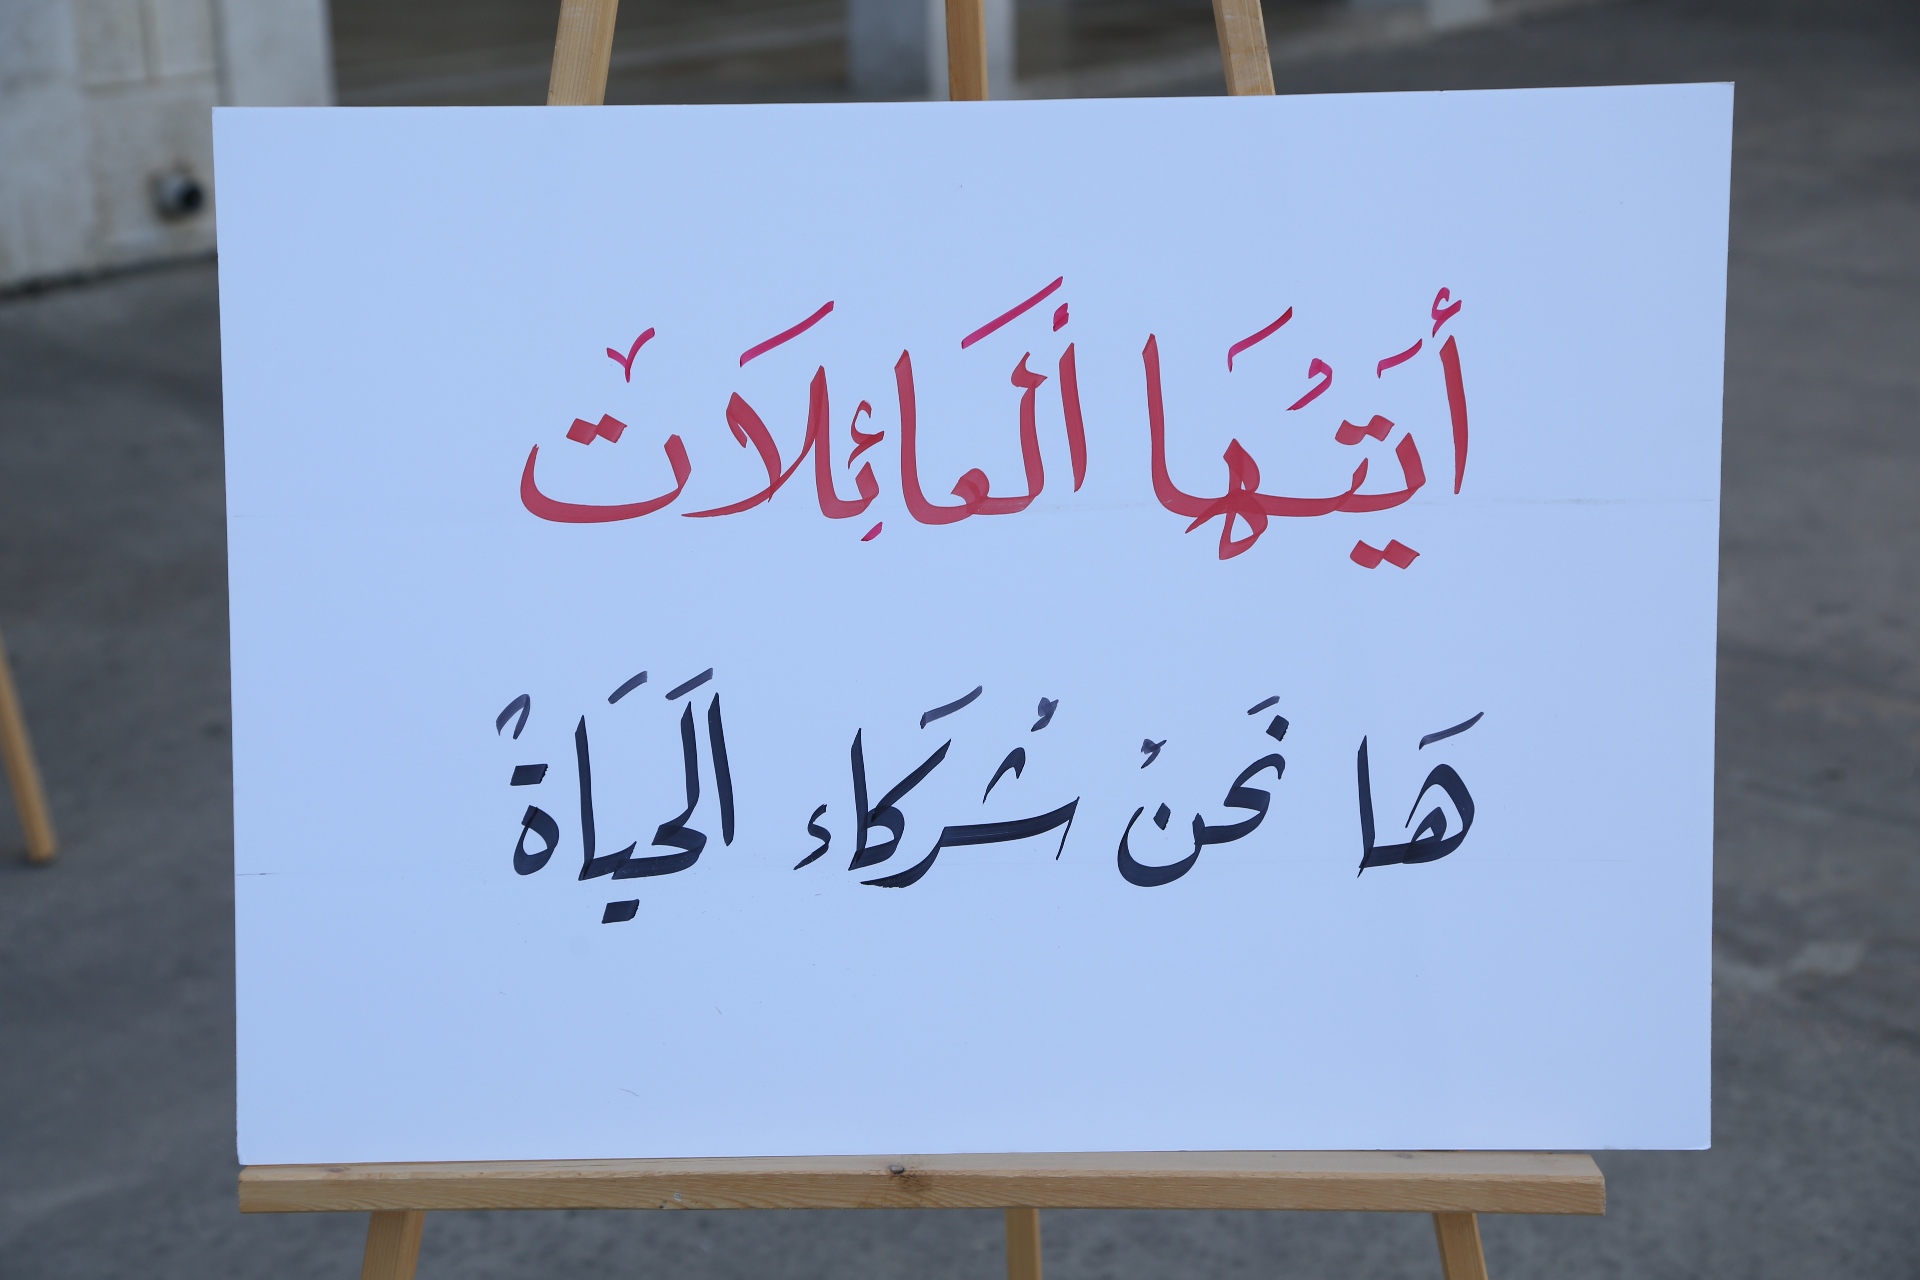 أَيَتُهَا أَلْعَائِلَاتْ
هَا نَحنْ شُرَكاء اَلحَيَاةْ